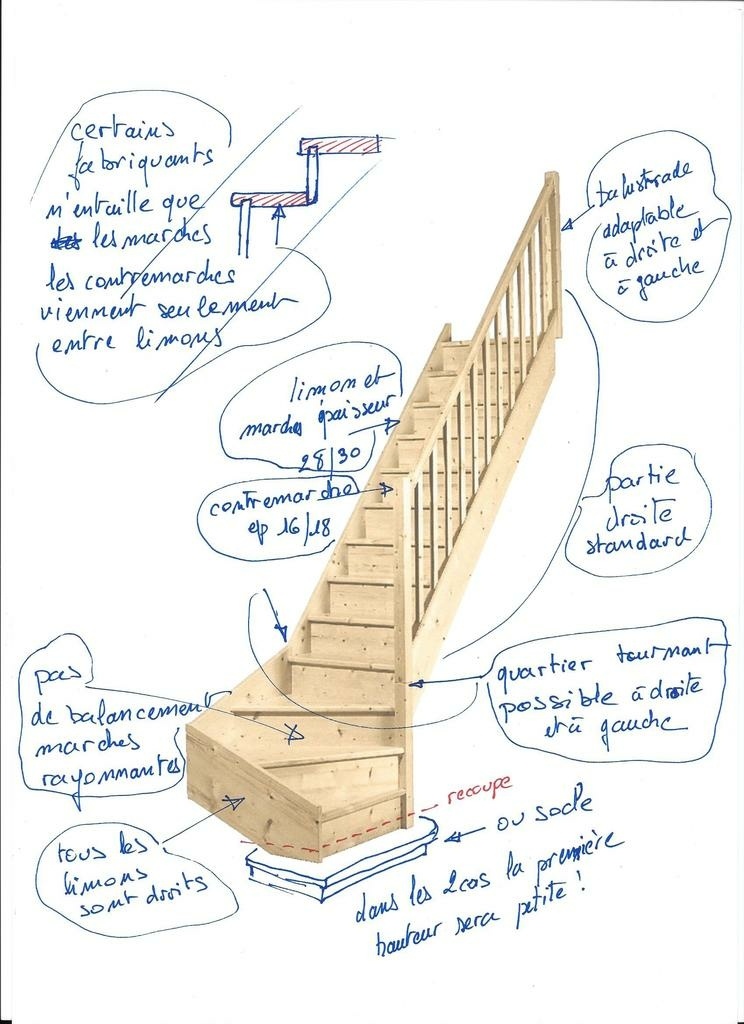 certains
fabriquants
n'entaille que
les marches
les contremarches
viennent seulement
entre limons
balustrade
adaptable
à droite et
à gauche
limon et
marches épaisseur
28/30
contremarche
ep 16/18
partie
droite
standard
quartier tournant
possible à droite
et à gauche
pas
de balancement
marches
rayonnantes
recoupe
ou socle
tous les
limons
sont droits
dans les 2 cas la première
hauteur sera petite !